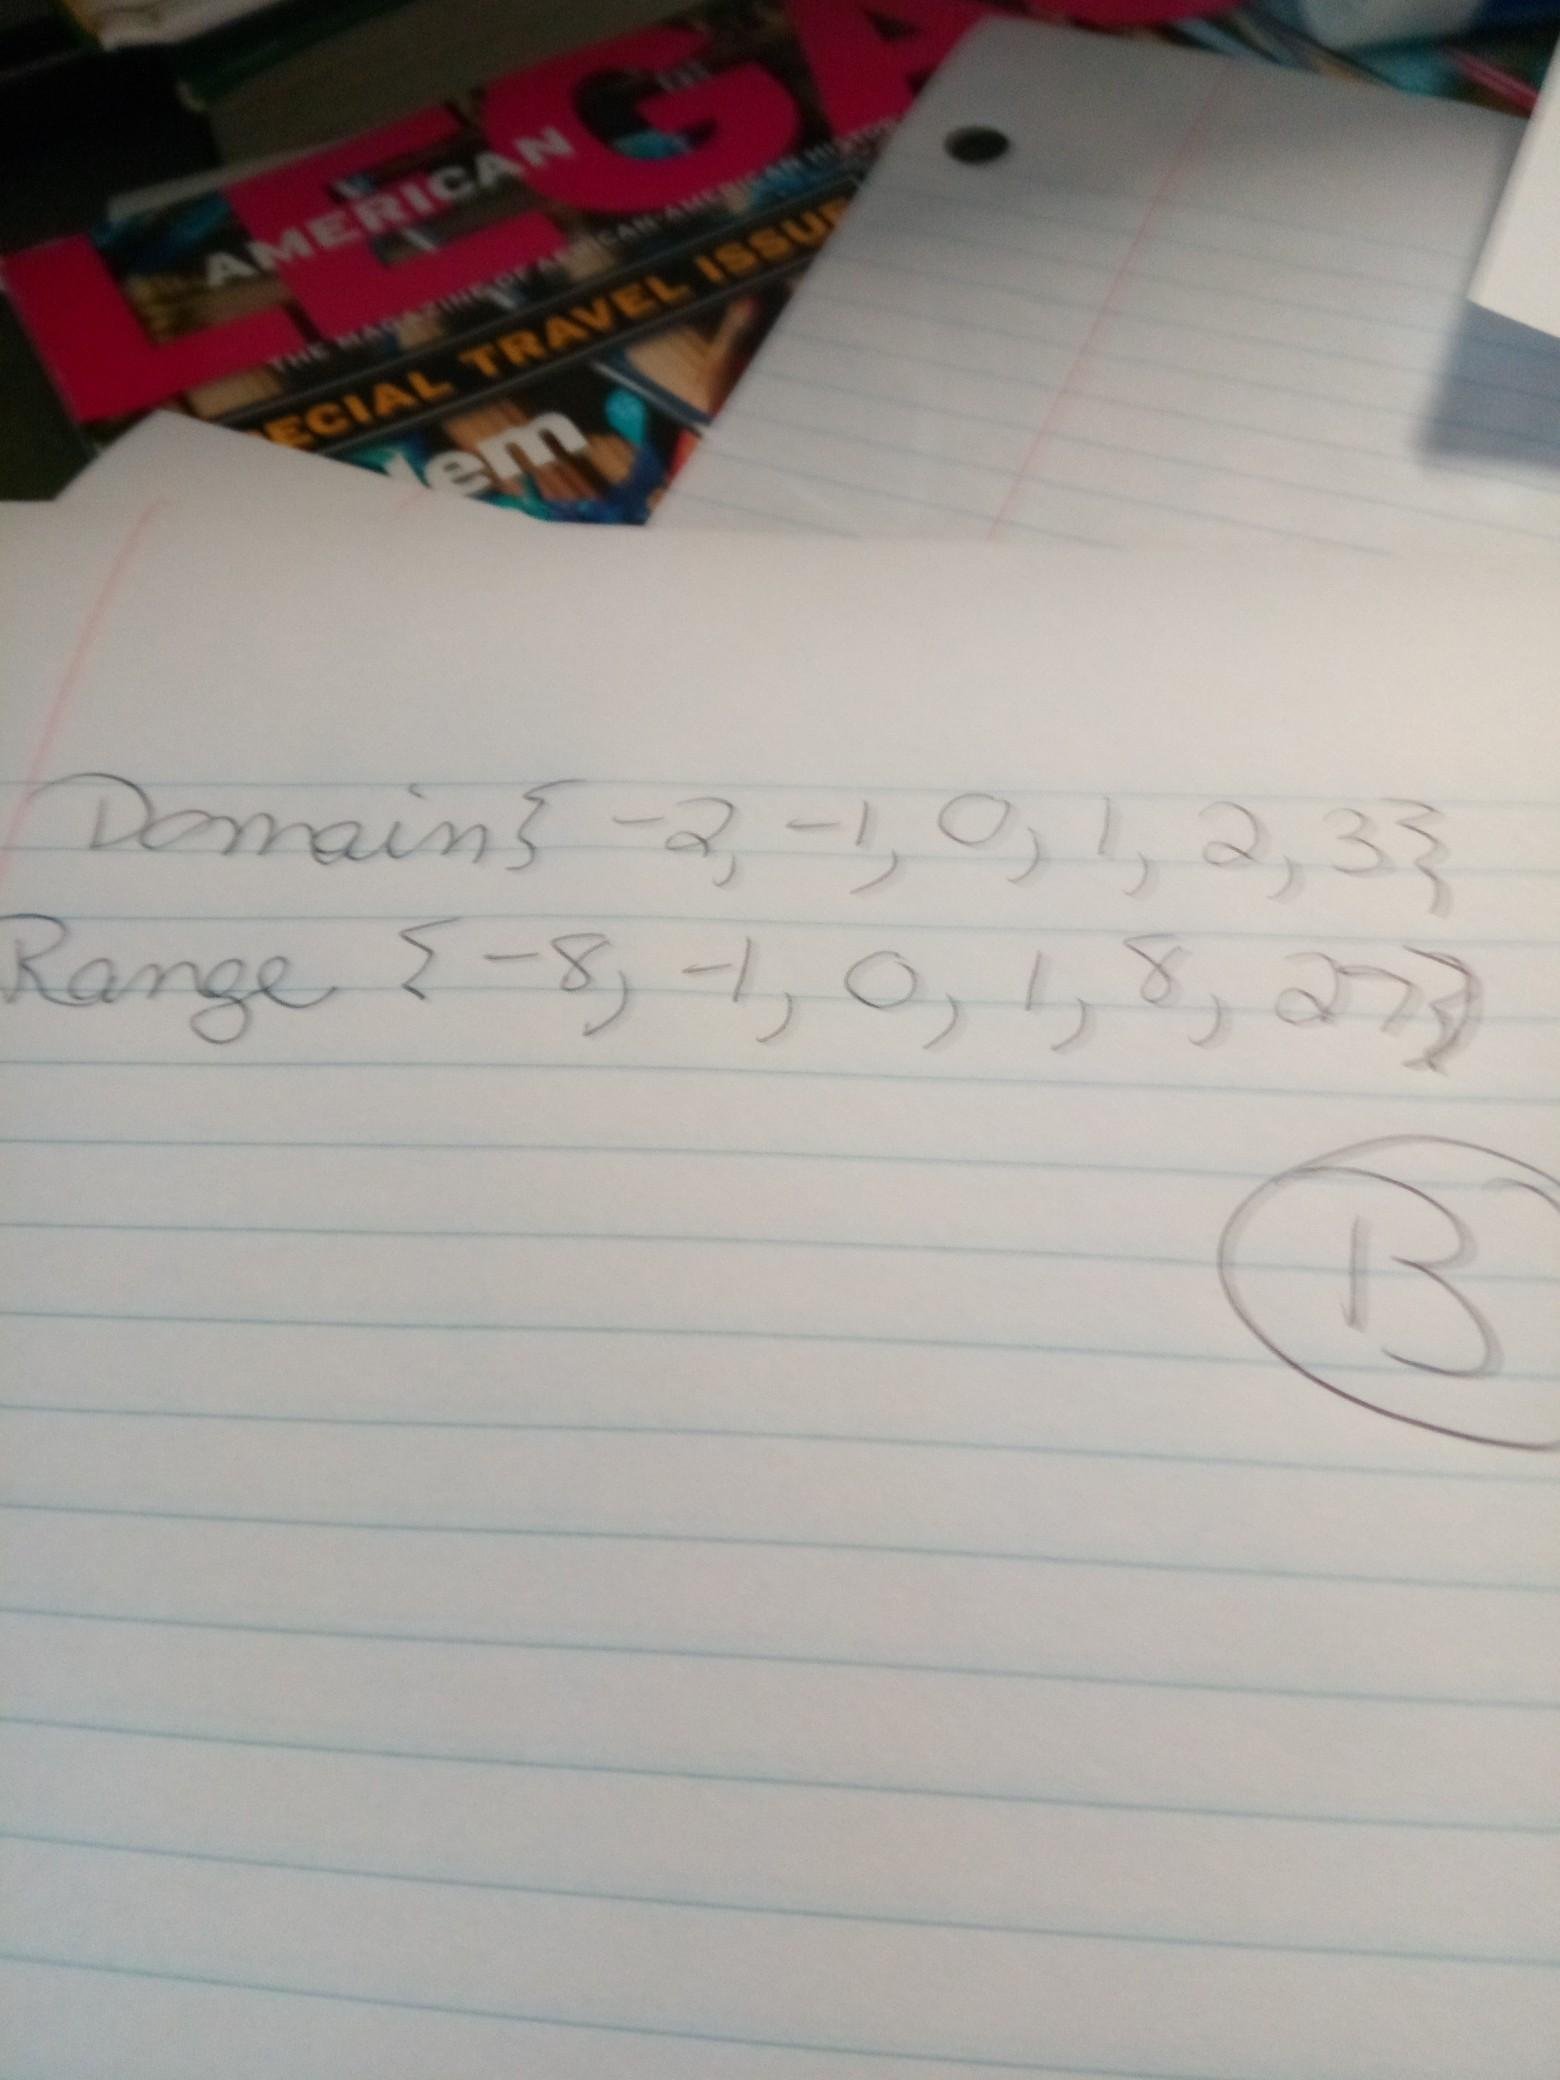 LEGA
AMERICAN
THE MAGAZINE OF AFRICAN-AMERICAN
ECIAL TRAVEL ISSUE
lem
Domain{ -2, -1, 0, 1, 2, 3}
Range {-8, -1, 0, 1, 8, 27}
B